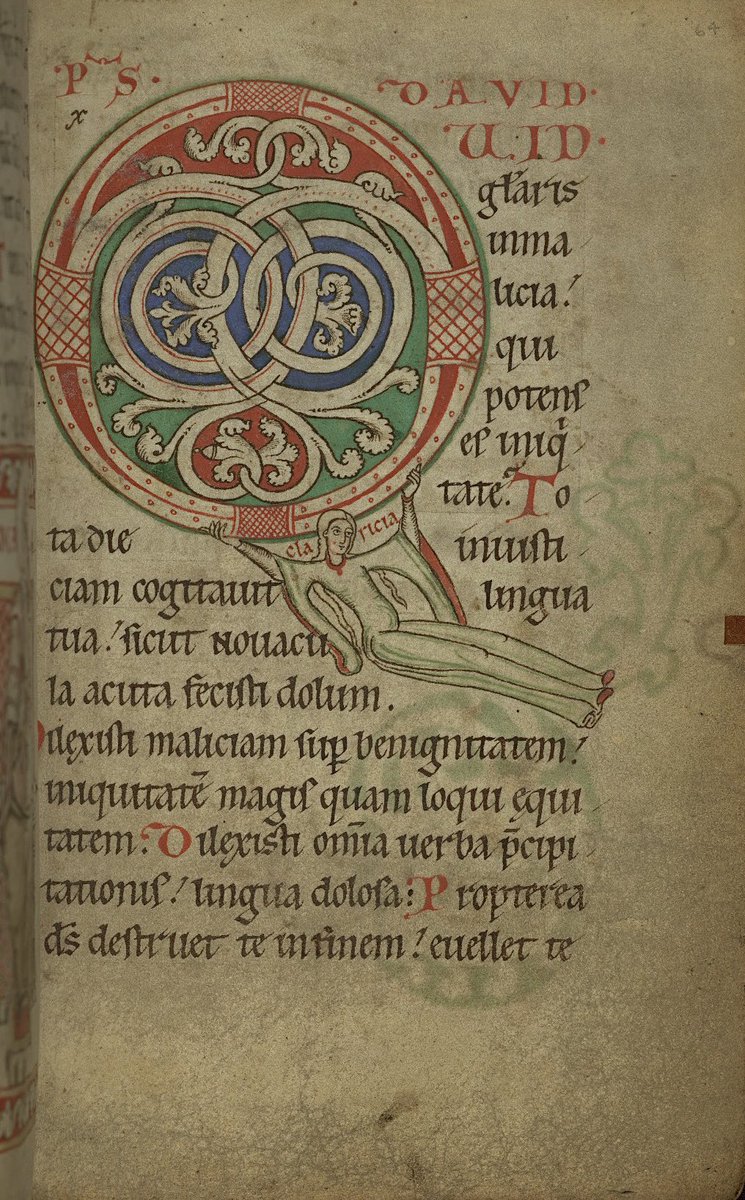 PS. DAVID.
x
QUID.
gl̄aris
inma
licia!
qui
potens
es iniq̇
tate? To
ta die iniusti
claricia
ciam cogitauit lingua
tua! sicut nouacu
la acuta fecisti dolum.
Dilexisti maliciam sup̄ benignitatem!
iniquitatē magis quam loqui ęqui
tatem. Dilexisti om̄ia uerba p̄cipi
tationis! lingua dolosa: Propterea
d̄s destruet te infinem! euellet te
64